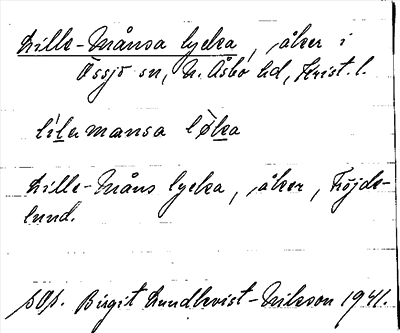 Lille-Månsa lycka, åker i
Össjö sn, N. Åsbo hd, Krist. l.
lilemansa løka
Lille-Måns lycka, åker, Höjds-
lund.
sOp. Birgit Lundkvist-Nilsson 1941.